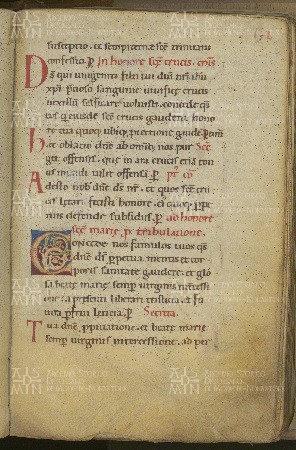 susceptio. et sempiterne sce trinitatis
confessio. p In honore sce crucis. coll
Ds qui unigeniti filii tui dni nri ihu
xpi pcioso sanguine vivifice crucis
vexillum scificare voluisti. concede qs
eos qui eiusde sce crucis gaudent hono
re tua quoq ubiq ptectione gaudere. p
Hec oblatio dne ab omnib nos pur
get offensis. que in ara crucis etia totius
mundi tulit offensa. p
Adesto nob dne ds nr. et quos sce crucis
letari fecisti honore. ei quoq ppetuis
defende subsidiis. p ad honore
sce marie p tribulatione.
Concede nos famulos tuos qs
dne ds ppetua mentis et cor
poris sanitate gaudere. et glosa
beate marie semp virginis intercessi
one. a presenti liberari tristicia. et fu
tura pfrui leticia. p Secreta.
Tua dne ppitiatione. et beate marie
semp virginis intercessione. ad per
ARCHIVIO STORICO
DIOCESANO
NONANTOLA